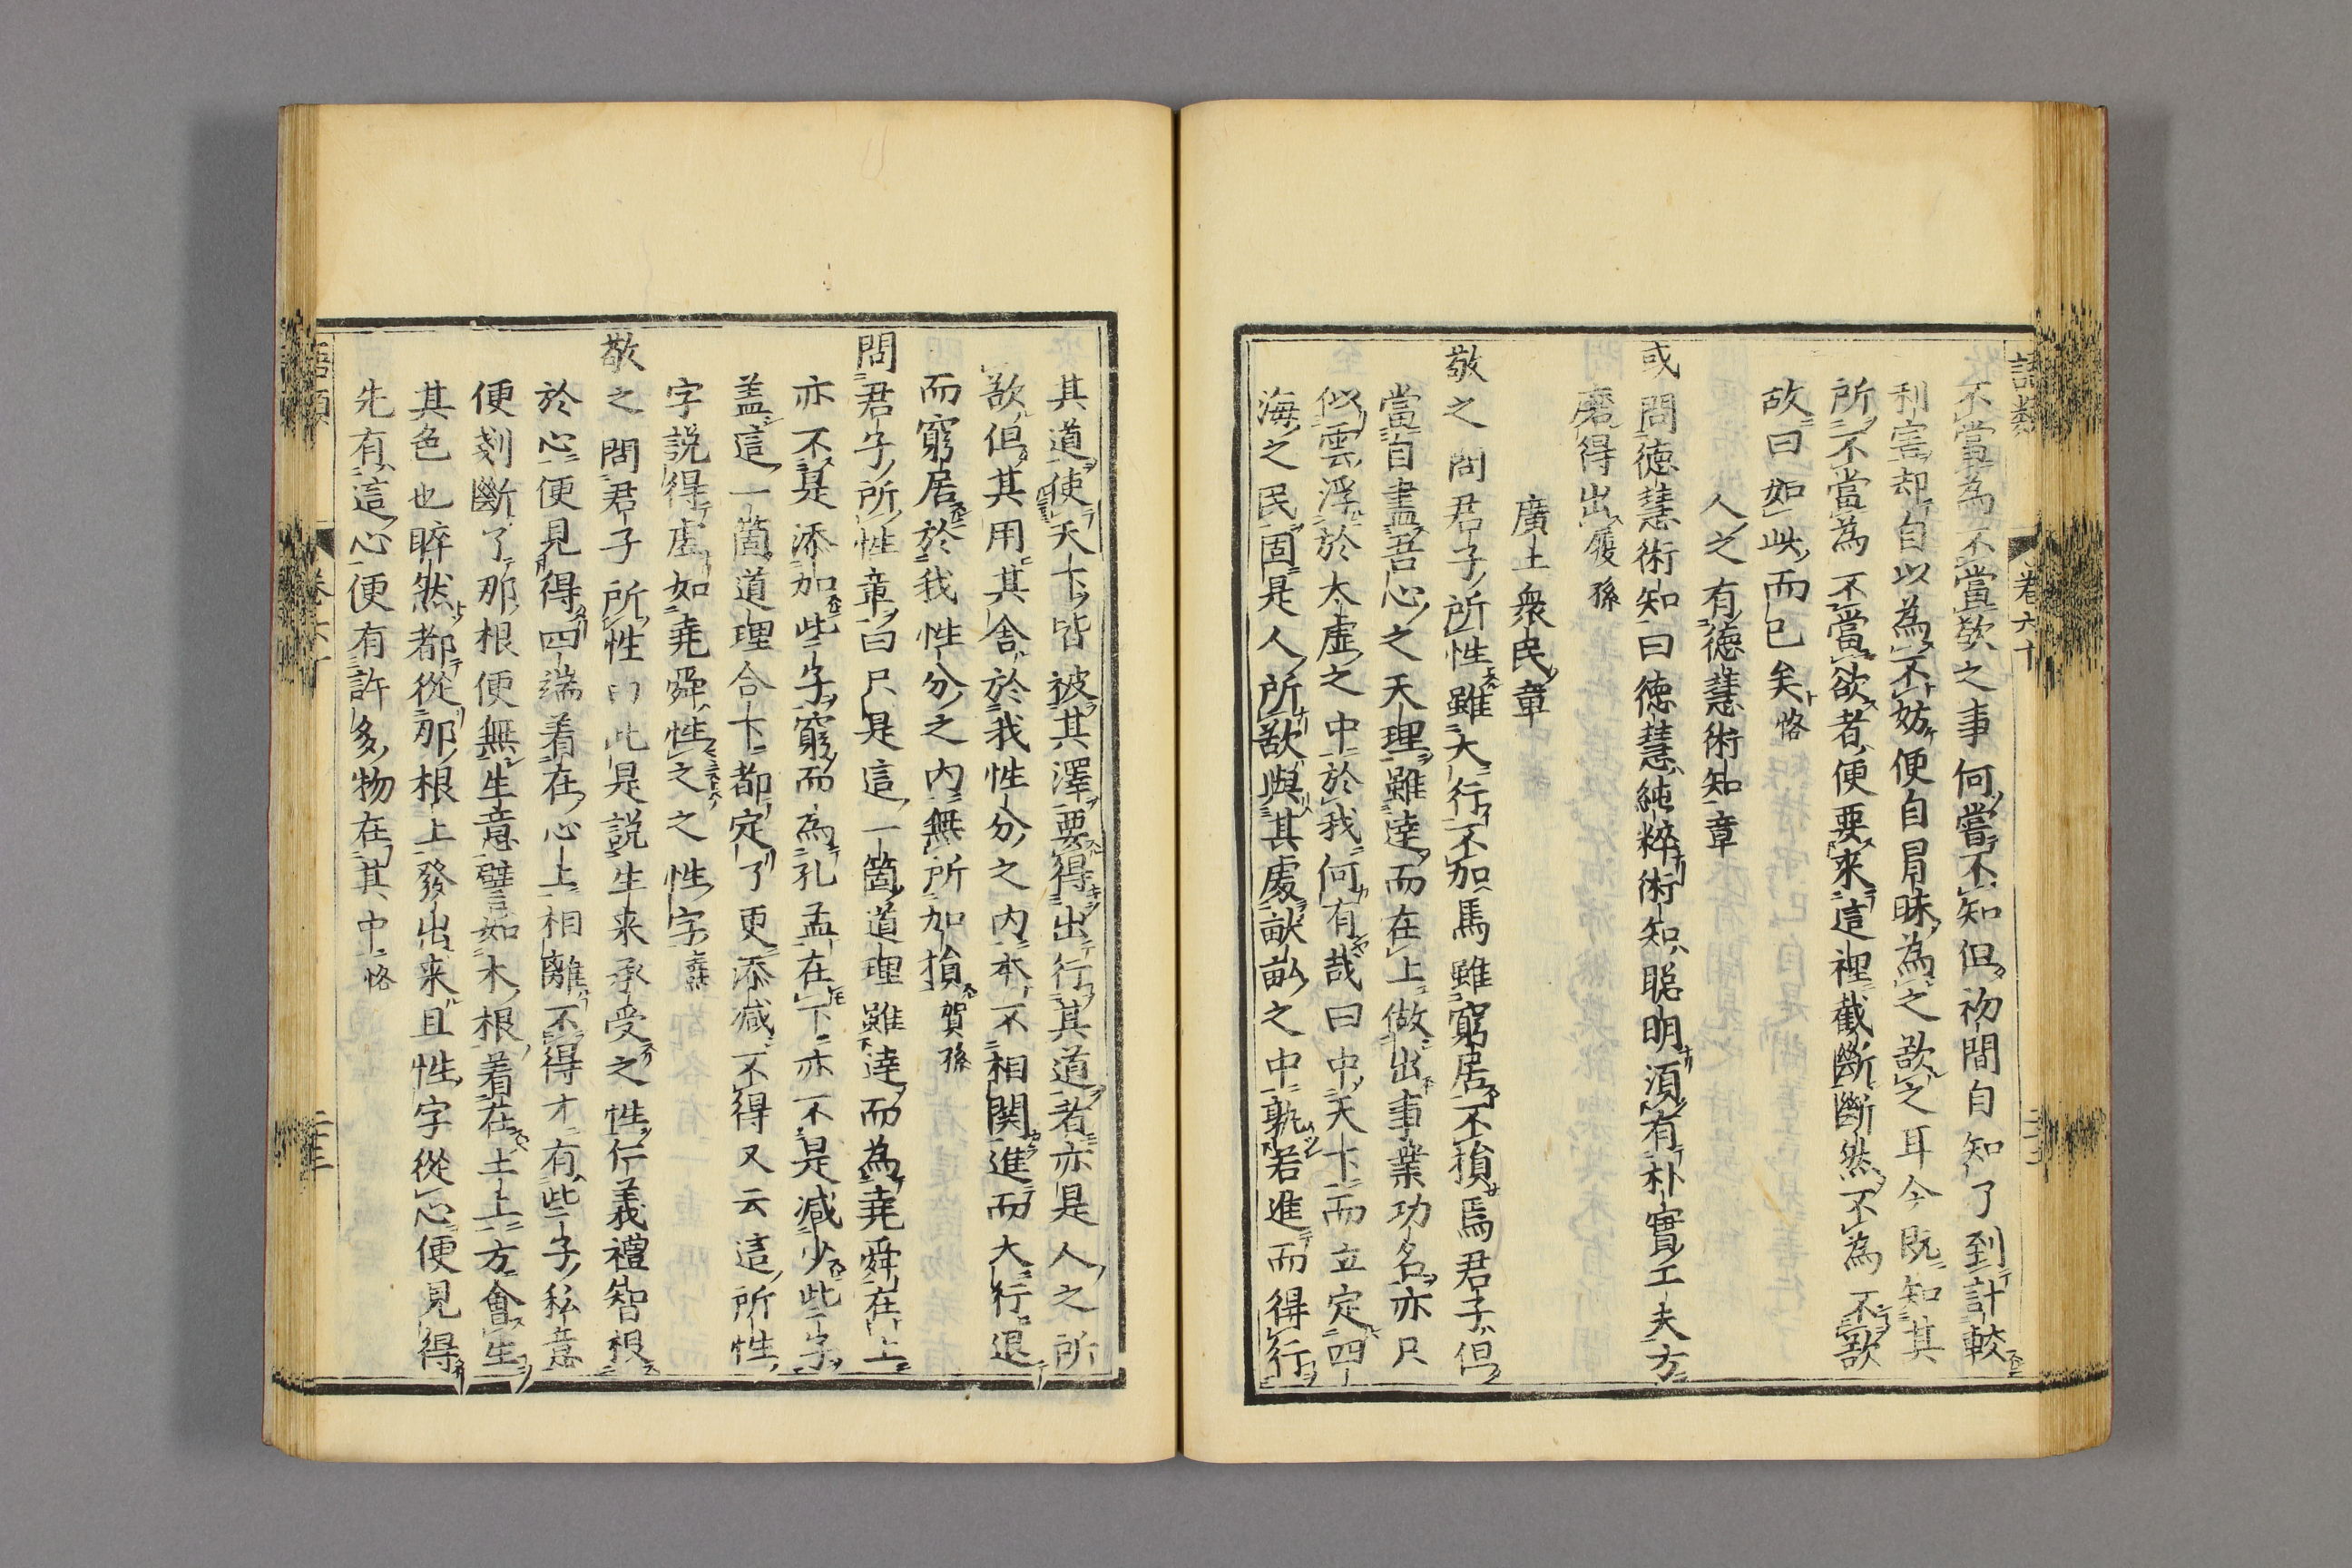 語類 卷六十 二十五
不當為不當欲之事何嘗不知但初間自知了到計較
利害却自以為不妨便自冒昧為之欲之耳今既知其
所不當為不當欲者便要来這裡截斷斷然不為不欲
故曰如此而已矣恪
人之有德慧術知章
或問德慧術知曰德慧純粹術知聡明須有朴實工夫方
磨得出履孫
廣土衆民章
敬之問君子所性雖大行不加焉雖窮居不損焉君子但
當自盡吾心之天理雖達而在上做出事業功名亦只
似雲浮於太虚之中於我何有哉曰中天下而立定四
海之民固是人所欲與其處畎畝之中孰若進而得行
其道使天下皆被其澤要得出行其道者亦是人之所
欲但其用其舎於我性分之内本不相関進而大行退
而窮居於我性分之内無所加損賀孫
問君子所性章曰只是這一箇道理雖達而為堯舜在上
亦不是添加些子窮而為孔孟在下亦不是減少些子
盖這一箇道理合下都定了更添減不得又云這所性
字説得虚如堯舜性之之性字
敬之問君子所性曰此是説生来承受之性仁義禮智根
於心便見得四端着在心上相離不得才有些子私意
便剗斷了那根便無生意譬如木根着在土上方會生
其色也睟然都從那根上發出来且性字從心便見得
先有這心便有許多物在其中恪
語類